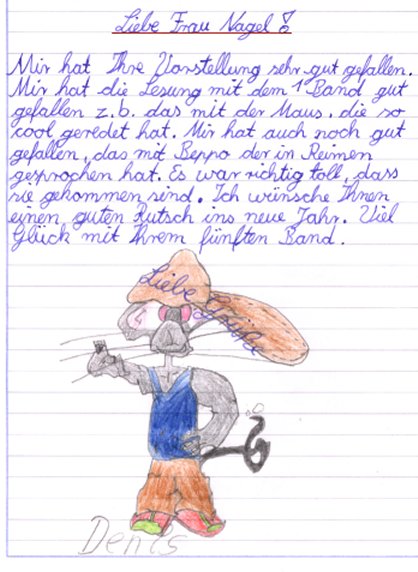 Liebe Frau Nagel!
Mir hat Ihre Vorstellung sehr gut gefallen.
Mir hat die Lesung mit dem 1 Band gut
gefallen z.b. das mit der Maus, die so
cool geredet hat. Mir hat auch noch gut
gefallen, das mit Beppo der in Reimen
gesprochen hat. Es war richtig toll, dass
sie gekommen sind. Ich wünsche Ihnen
einen guten Rutsch ins neue Jahr. Viel
Glück mit Ihrem fünften Band.
Liebe Grüße
Denis